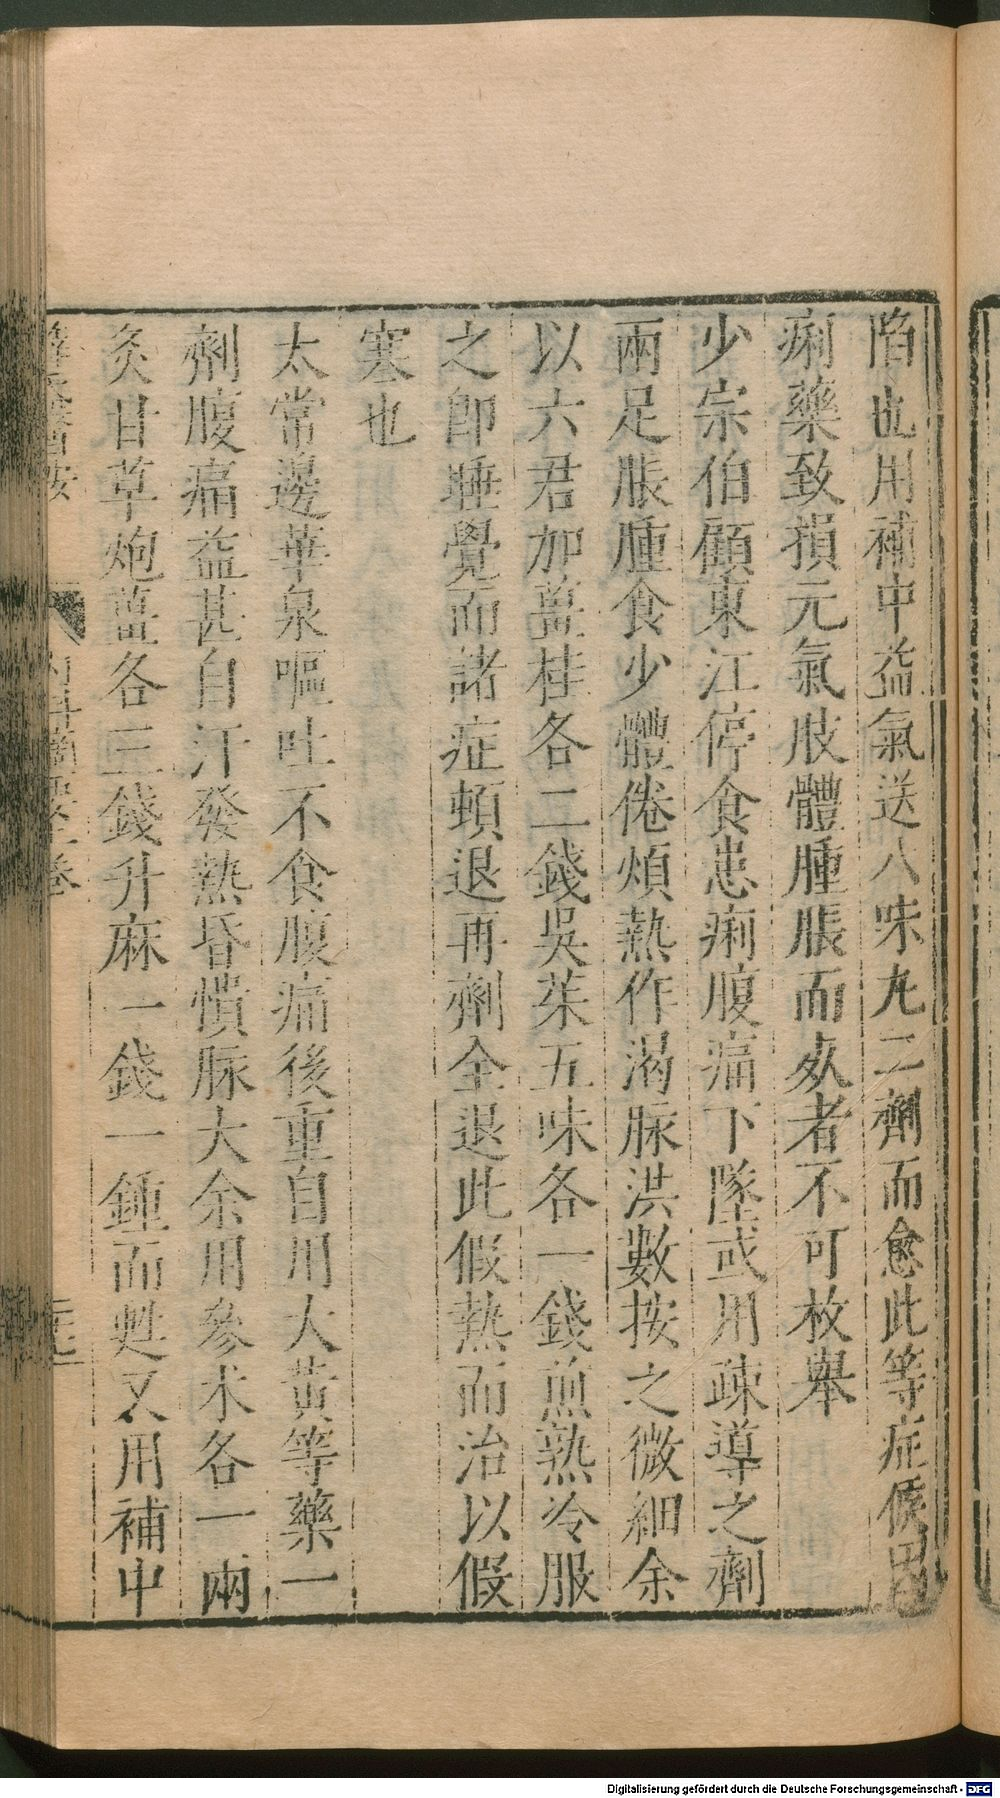 陷也用補中益氣送八味丸二劑而愈此等症候因
痢藥致損元氣肢體腫脹而歿者不可枚舉
少宗伯顧東江停食患痢腹痛下墜或用疎導之劑
兩足脹腫食少體倦煩熱作渴脉洪數按之微細余
以六君加薑桂各二錢吳茱五味各一錢煎熟冷服
之卽睡覺而諸症頓退再劑全退此假熱而治以假
寒也
太常邊華泉嘔吐不食腹痛後重自用大黃等藥一
劑腹痛益甚自汗發熱昏憒脉大余用參术各一兩
炙甘草炮薑各三錢升麻一錢一鍾而甦又用補中
內科摘要上卷
Digitalisierung gefördert durch die Deutsche Forschungsgemeinschaft - DFG